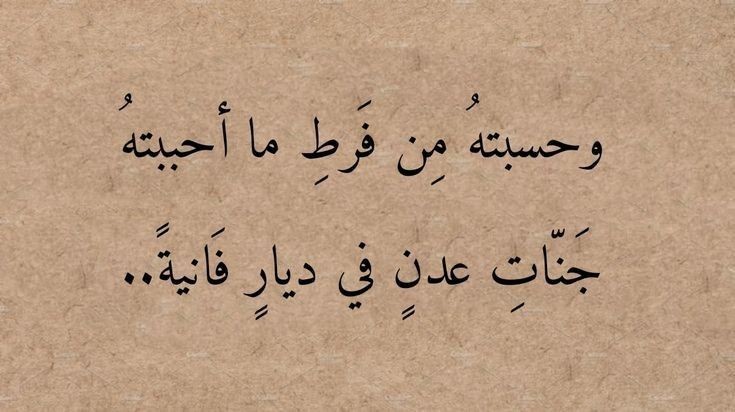 وحسبتهُ مِن فَرطِ ما أحببتهُ
جَنّاتِ عدنٍ في ديارٍ فَانيةً..